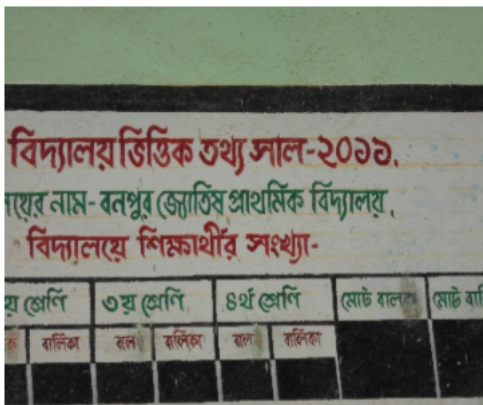 বিদ্যালয় ভিত্তিক তথ্য সাল-২০১১.
য়ের নাম- বনপুর জ্যোতিষ প্রাথমিক বিদ্যালয়,
বিদ্যালয়ে শিক্ষার্থীর সংখ্যা-
য় শ্রেণি ৩য় শ্রেণি ৪র্থ শ্রেণি মোট বালক মোট বালি
বালিকা বাল বালিকা বাল বালিকা